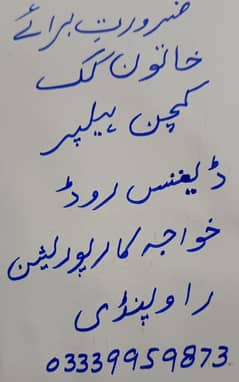 ضرورت برائے
خاتون کک
کچن ہیلپر
ڈیفنس روڈ
خواجہ کارپوریشن
راولپنڈی
03339959873